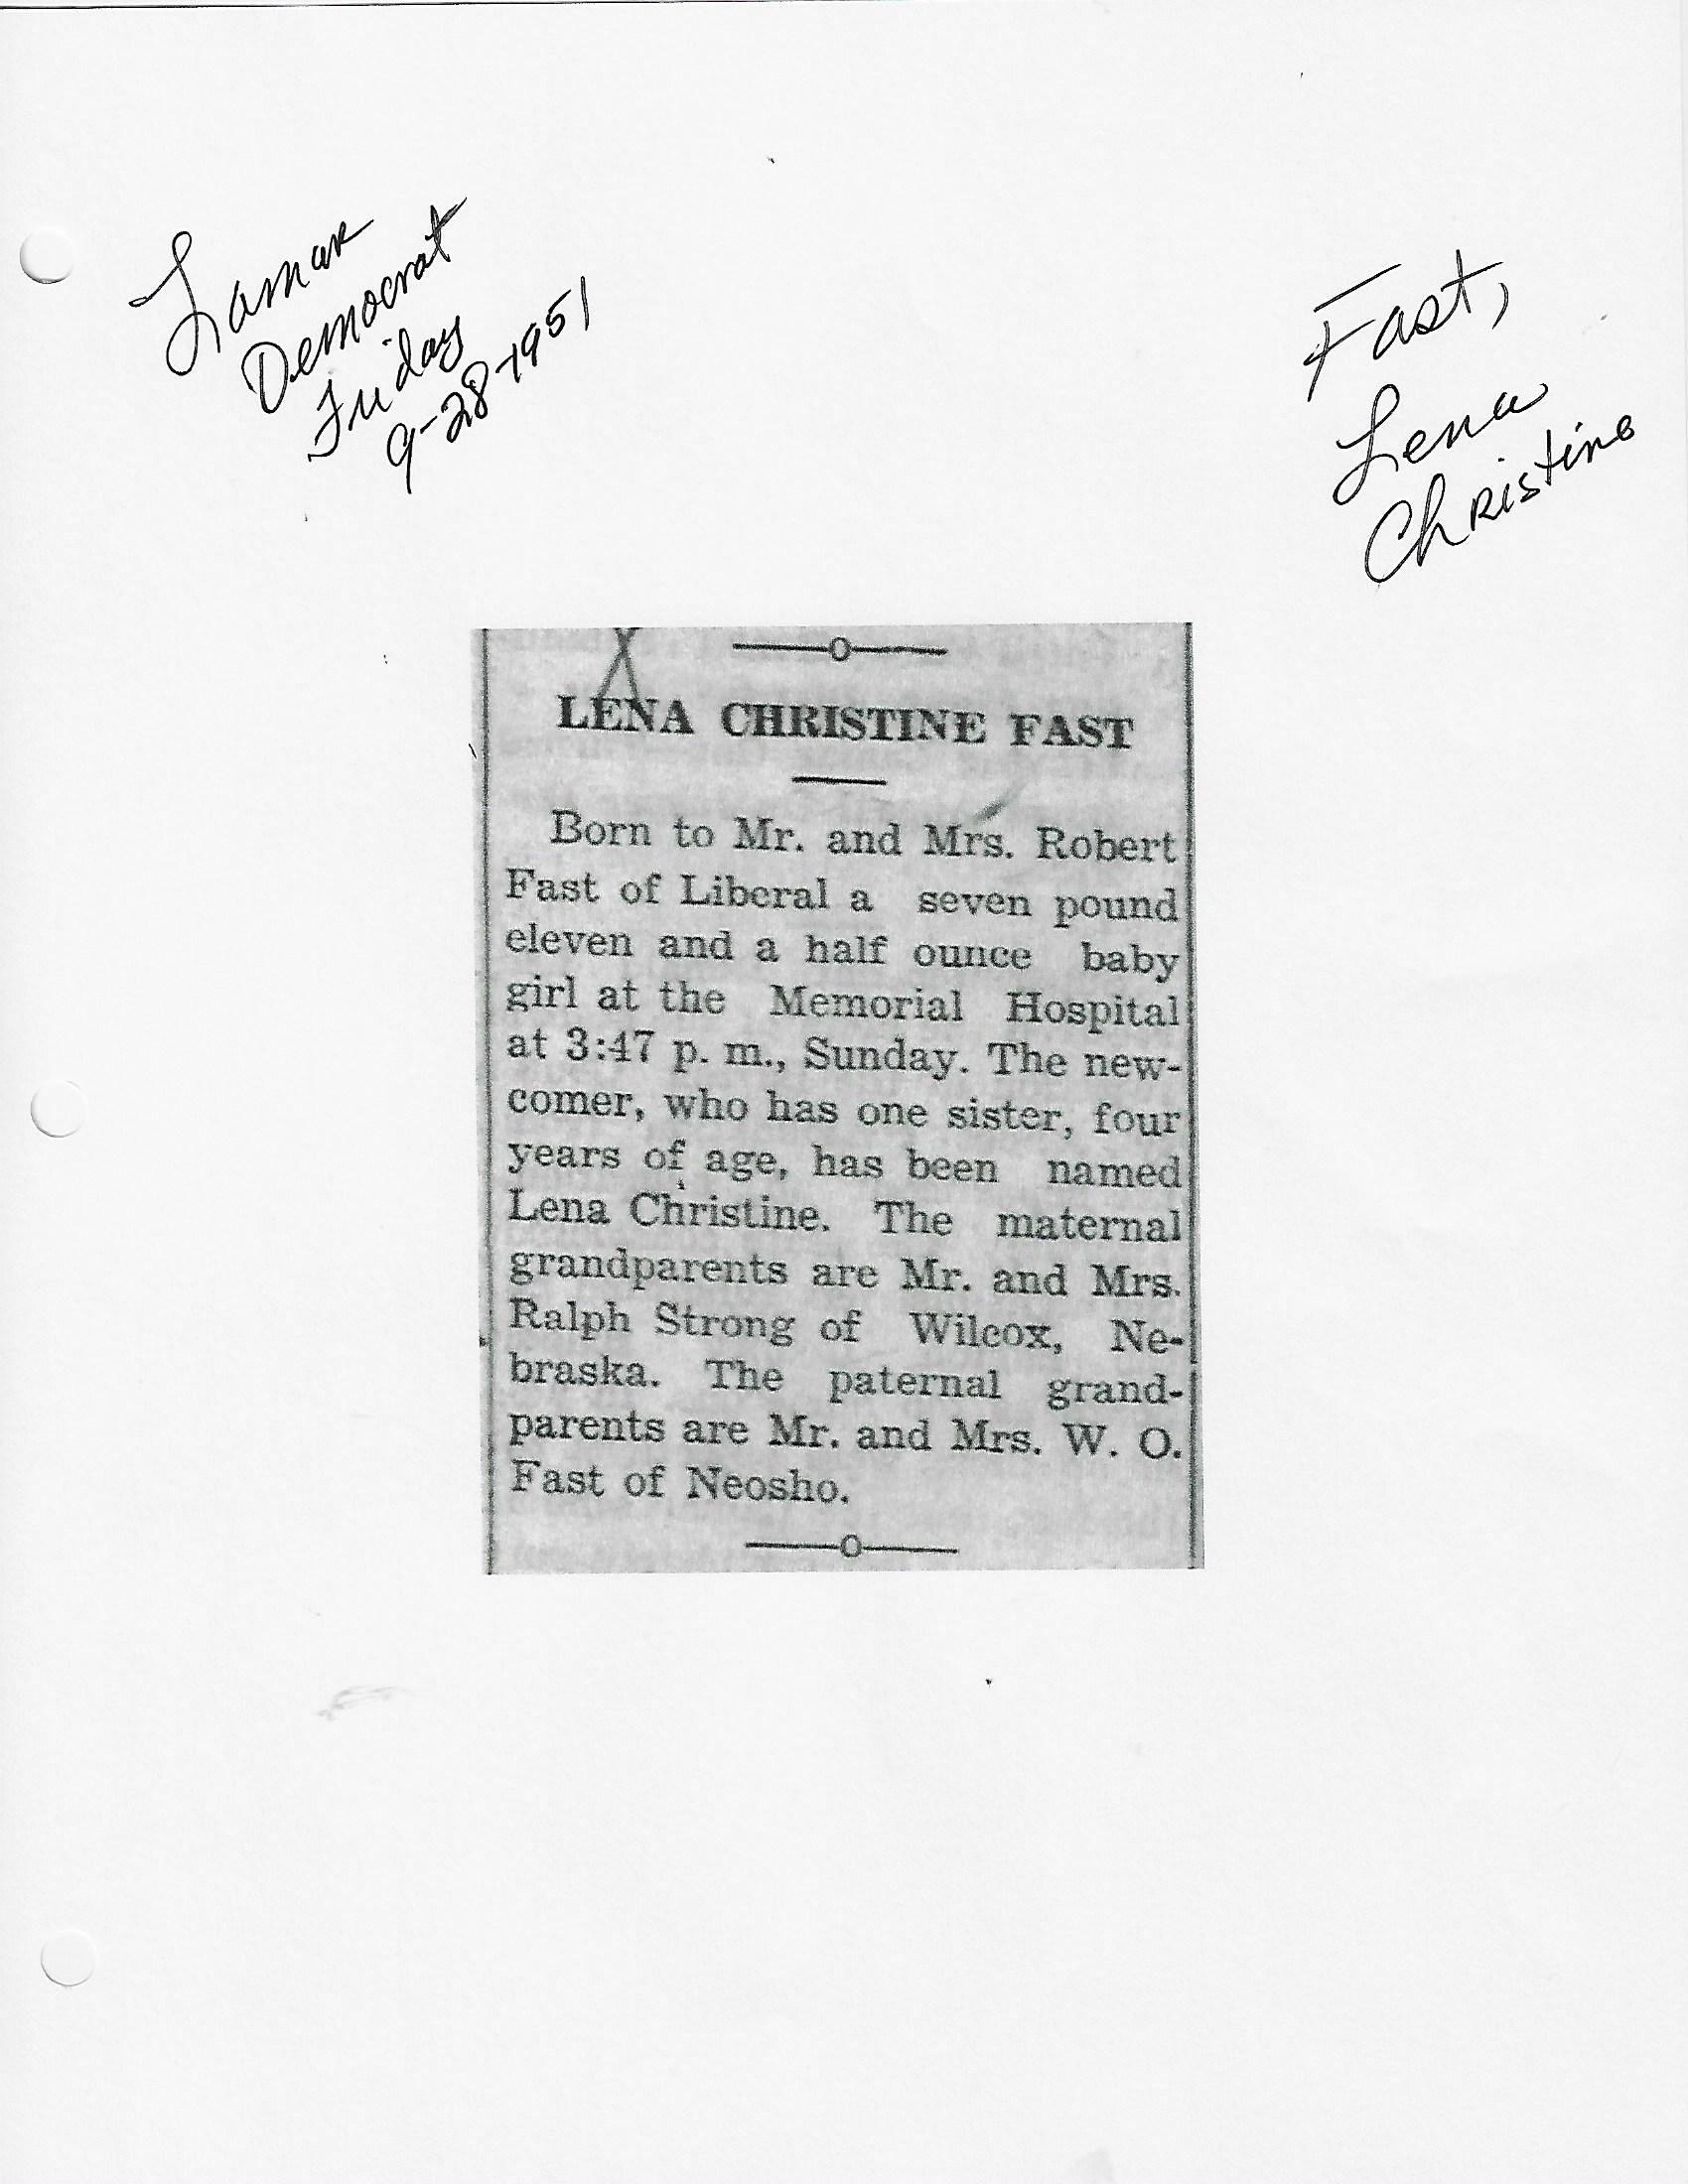 Lamar
Democrat
Friday
9-28-1951
Fast,
Lena
Christine
X
LENA CHRISTINE FAST
Born to Mr. and Mrs. Robert
Fast of Liberal a seven pound
eleven and a half ounce baby
girl at the Memorial Hospital
at 3:47 p. m., Sunday. The new-
comer, who has one sister, four
years of age, has been named
Lena Christine. The maternal
grandparents are Mr. and Mrs.
Ralph Strong of Wilcox, Ne-
braska. The paternal grand-
parents are Mr. and Mrs. W. O.
Fast of Neosho.